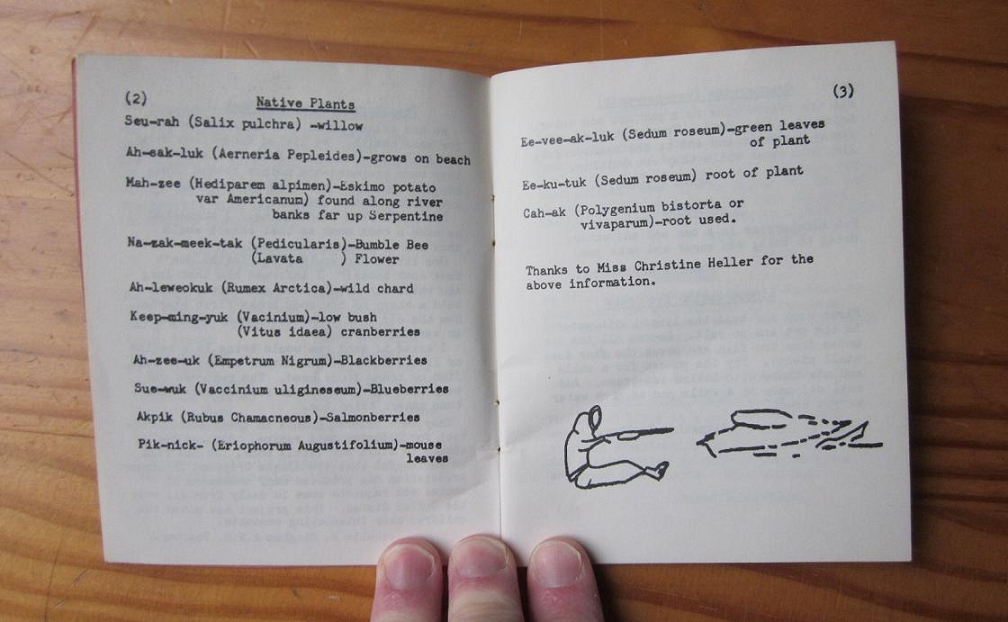 (2)
Native Plants
Seu-rah (Salix pulchra) -willow
Ah-sak-luk (Aerneria Pepleides)-grows on beach
Mah-zee (Hediparem alpimen)-Eskimo potato
var Americanum) found along river
banks far up Serpentine
Na-zak-meek-tak (Pedicularis)-Bumble Bee
(Lavata ) Flower
Ah-leweokuk (Rumex Arctica)-wild chard
Keep-ming-yuk (Vacinium)-low bush
(Vitus idaea) cranberries
Ah-zee-uk (Empetrum Nigrum)-Blackberries
Sue-wuk (Vaccinium uligineseum)-Blueberries
Akpik (Rubus Chamacneous)-Salmonberries
Pik-nick- (Eriophorum Augustifolium)-mouse
leaves
(3)
Ee-vee-ak-luk (Sedum roseum)-green leaves
of plant
Ee-ku-tuk (Sedum roseum) root of plant
Cah-ak (Polygenium bistorta or
vivaparum)-root used.
Thanks to Miss Christine Heller for the
above information.